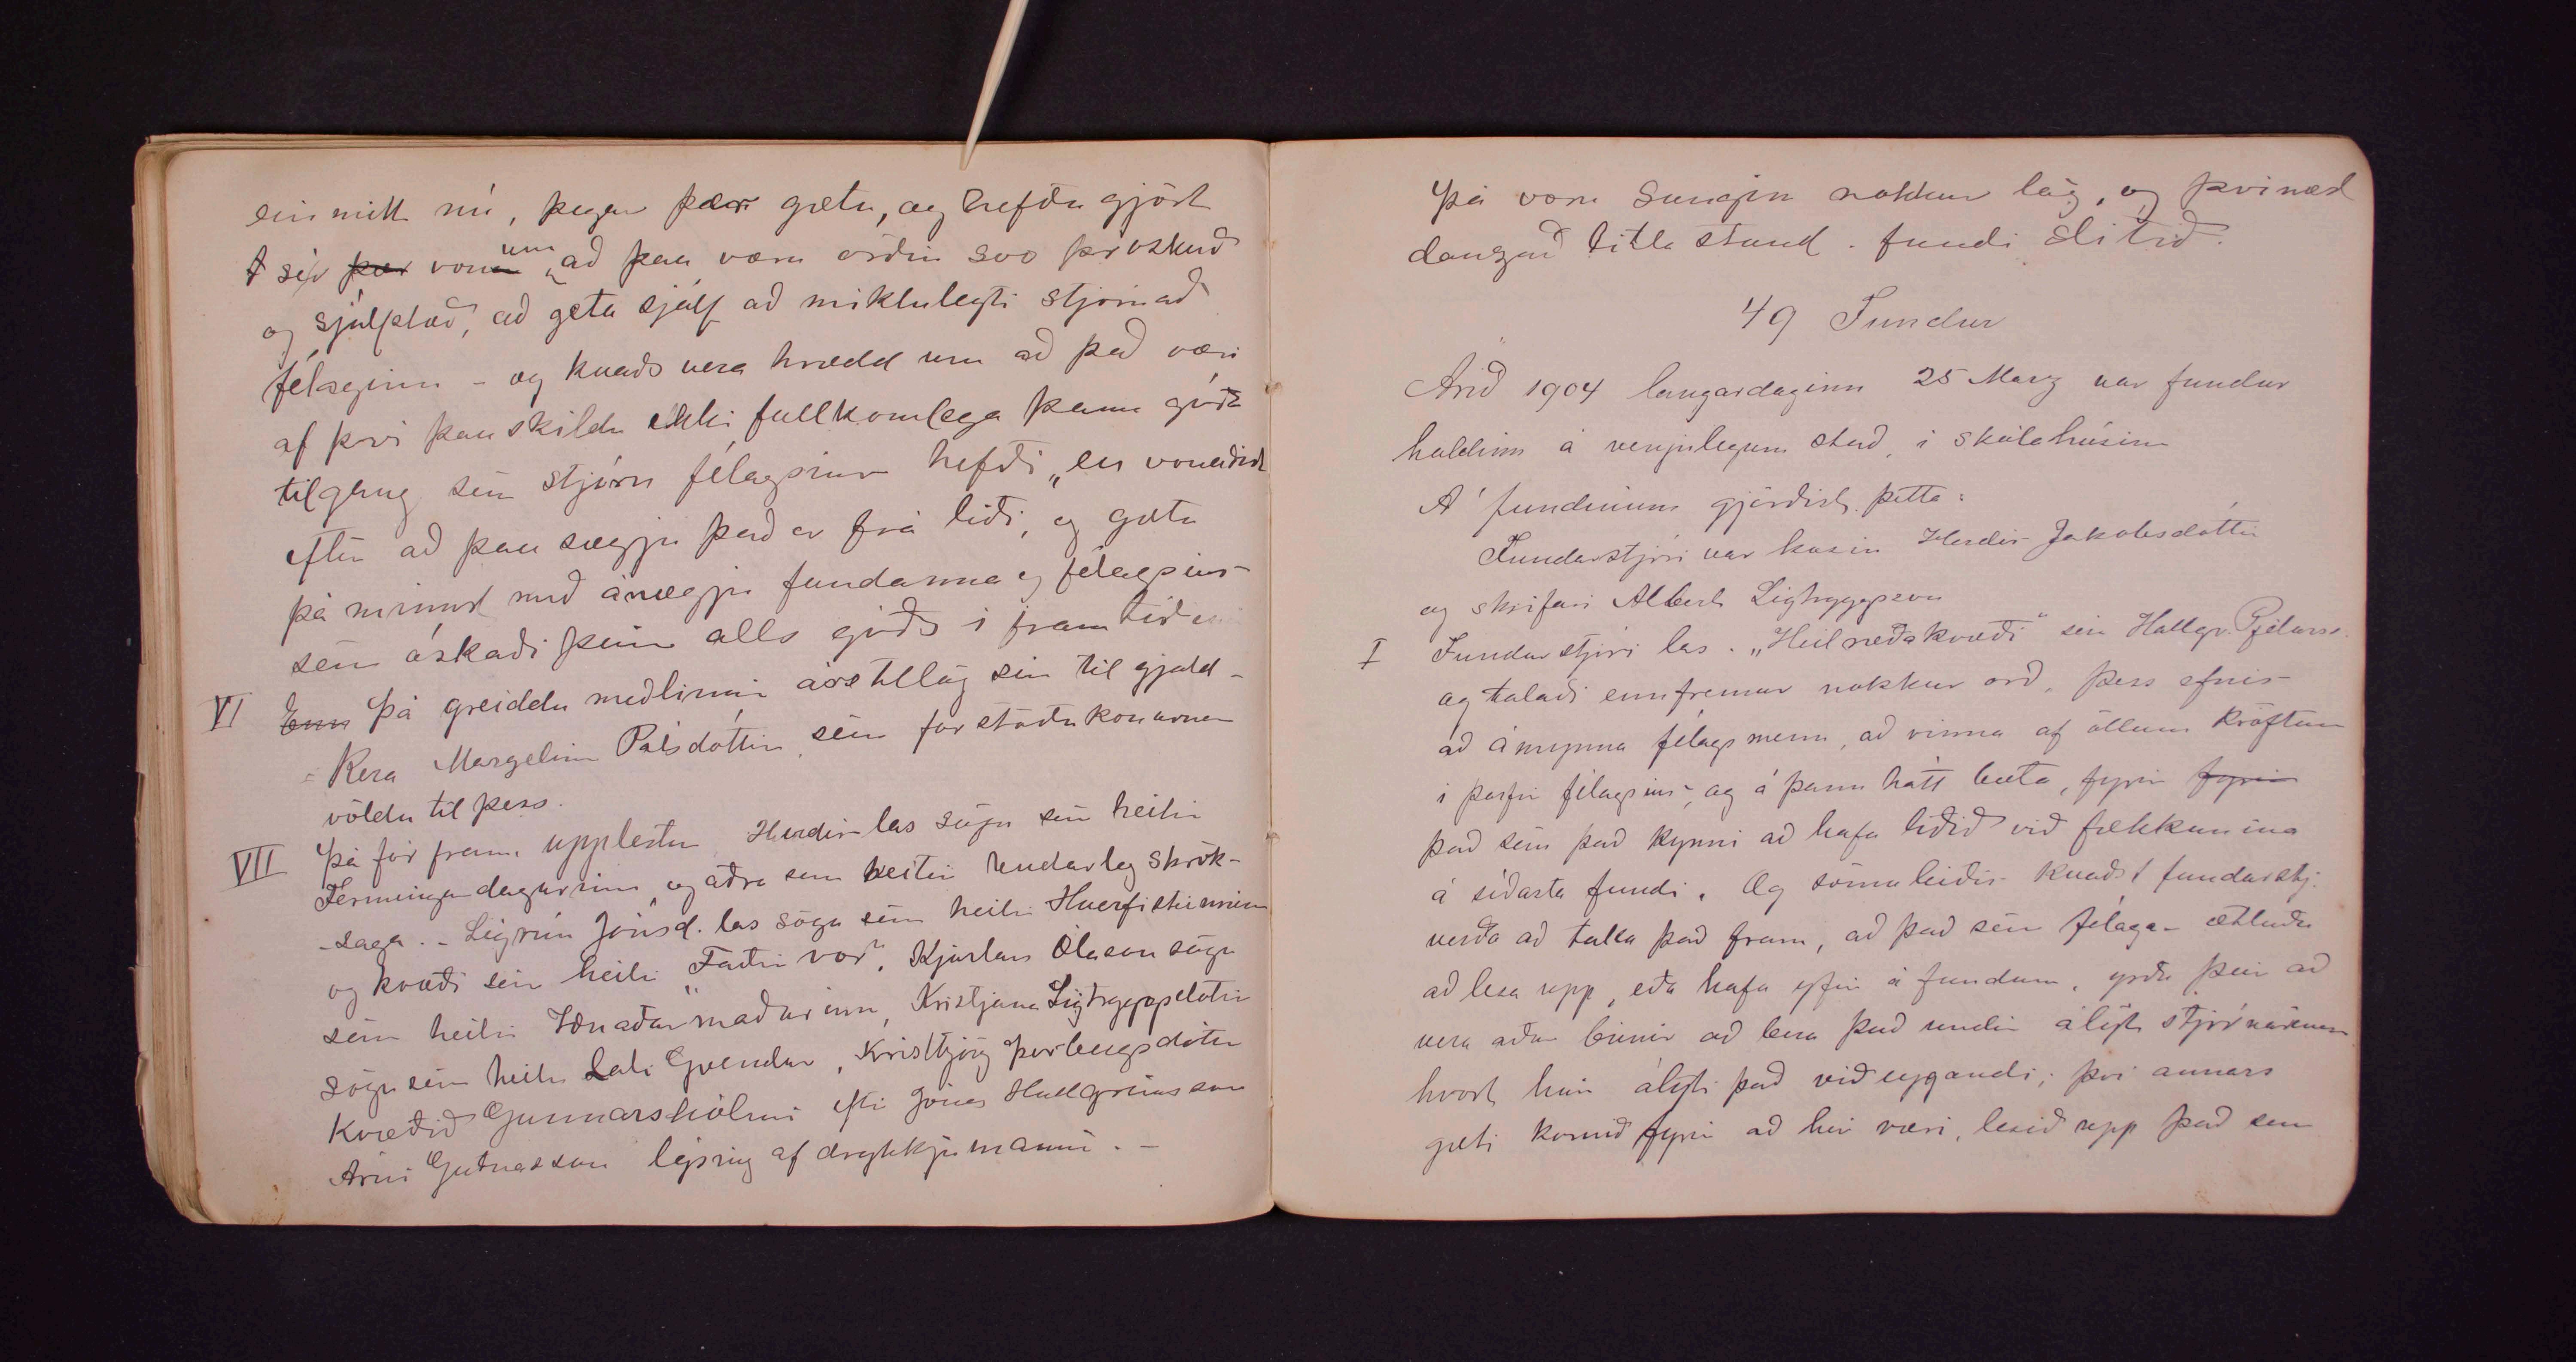 einmitt nú, þegar þær gætu, og hefðu gjört
sér þær vonir um að þau væru orðin svo þroskuð
og sjálfstæð, að geta sjálf að miklulegti stjórnað
félaginu - og kvaðs vera hrædd um að það væri
af því þau skildu ekki fullkomlega þann góða
tilgang sem stjórn félagsins hefði, en vonaðist
eftir að þau sægju það er frá liði, og gætu
þá minnst með ánægju fundanna og félagsins-
sem óskaði þeim alls góðs í framtíðinni
VI Enn Þá greiddu meðlimir árstillög sín til gjald-
- kera Margelínu Pálsdóttir, sem forstöðukonurnar
völdu til þess.
VII Þá fór fram upplestur Herdís las sögu sem heitir
Fermingardagurinn, og aðra sem heitir Undarleg skrök-
-saga. - Sigrún Jónsd. las sögu sem heitir Hverfisteinninn
og kvæði sem heitir "Faðir vor", Kjartan Ólason sögu
sem heitir Iðnaðarmaðurinn, Kristjana Sigtryggsdóttir
sögu sem heitir Lati Gvendur, Kristbjörg Þorbergsdóttir
Kvæðið Gunnarshólmi eftir Jónas Hallgrímsson
Árni Guðnasson lýsing af drykkjumanni. -
Þá voru sungin nokkur lög, og þvínæst
danzað litla stund. fundi slitið.
49 Fundur
Árið 1904 laugardaginn 25 Marz var fundur
haldinn á venjulegum stað, í skólahúsinu
Á fundinum gjörðist þetta:
Fundarstjóri var kosin Herdís Jakobsdóttir
og skrifari Albert Sigtryggsson
I Fundarstjóri las. "Heilræðakvæði" sem Hallgr. Pjeturss.
og talaði ennfremur nokkur orð, þess efnis-
að ámynna félagsmenn, að vinna af öllum kröftum
í þarfir félagsins-, og á þann hátt bæta, fyrir fyrir
það sem það kynni að hafa liðið við fækkunina
á síðasta fundi. Og sömuleiðis kvaðst fundarstj.
verða að taka það fram, að það sem félagar ætluðu
að lesa upp, eða hafa yfir á fundum, yrðu þeir að
vera áður búnir að bera það undir álit stjórnarinnar
hvort hún áliti það viðeygandi; því annars
gæti komið fyrir að hér væri, lesið upp það sem